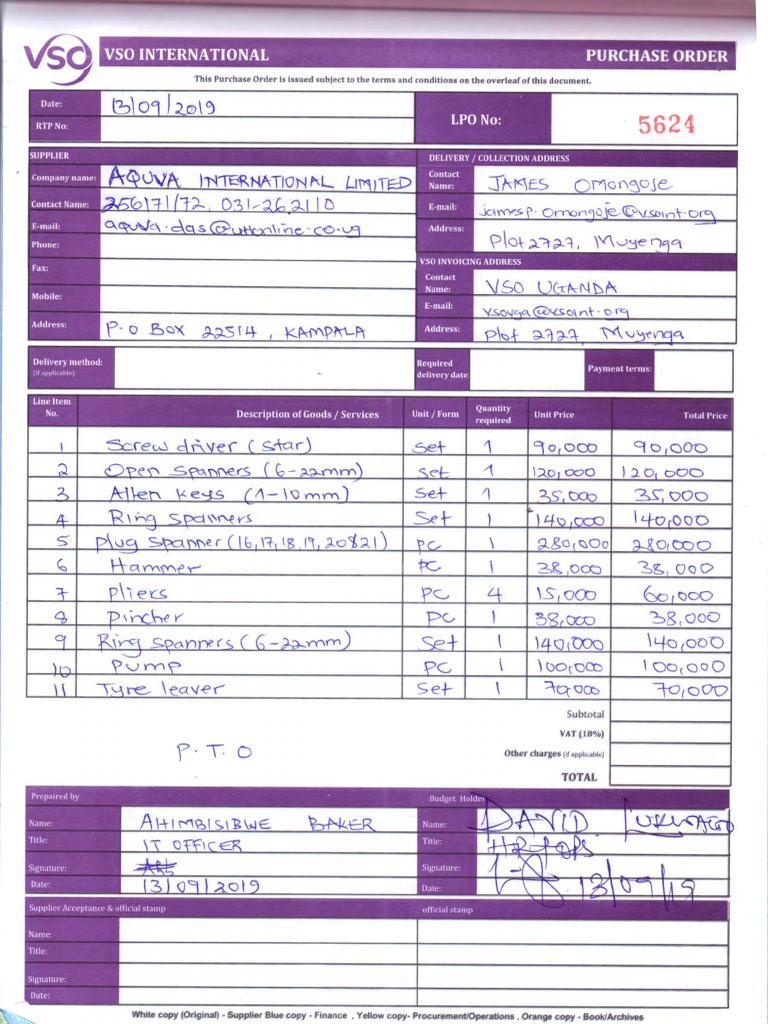 VSO VSO INTERNATIONAL PURCHASE ORDER
This Purchase Order is issued subject to the terms and conditions on the overleaf of this document.
Date: 13/09/2019
RTP No:
LPO No: 5624
SUPPLIER
Company name: AQUVA INTERNATIONAL LIMITED
Contact Name: 256171/72, 031-262110
E-mail: aquva.das@uttonline.co.ug
Phone:
Fax:
Mobile:
Address: P.O BOX 22514, KAMPALA
DELIVERY / COLLECTION ADDRESS
Contact Name: JAMES Omongose
E-mail: jamesp.omongoje@vsoint.org
Address: Plot 2727, Muyenga
VSO INVOICING ADDRESS
Contact Name: VSO UGANDA
E-mail: vsouga@vsoint.org
Address: Plot 2727, Muyenga
Delivery method: (if applicable)
Required delivery date
Payment terms:
Line Item No. Description of Goods / Services Unit / Form Quantity required Unit Price Total Price
1 Screw driver (star) Set 1 90,000 90,000
2 Open spanners (6-22mm) Set 1 120,000 120,000
3 Allen keys (1-10mm) Set 1 35,000 35,000
4 Ring spanners Set 1 140,000 140,000
5 Plug spanner (16,17,18,19,20&21) PC 1 280,000 280,000
6 Hammer PC 1 38,000 38,000
7 Pliers PC 4 15,000 60,000
8 Pincher PC 1 38,000 38,000
9 Ring spanners (6-22mm) Set 1 140,000 140,000
10 Pump PC 1 100,000 100,000
11 Tyre leaver Set 1 70,000 70,000
Subtotal
VAT (18%)
P.T.O
Other charges (if applicable)
TOTAL
Prepaired by
Name: AHIMBISIBWE BAKER
Title: IT OFFICER
Signature:
Date: 13/09/2019
Budget Holder
Name: DAVID
Title:
Signature:
Date: 13/09/19
Supplier Acceptance & official stamp
official stamp
Name:
Title:
Signature:
Date:
White copy (Original) - Supplier Blue copy - Finance , Yellow copy- Procurement/Operations , Orange copy - Book/Archives